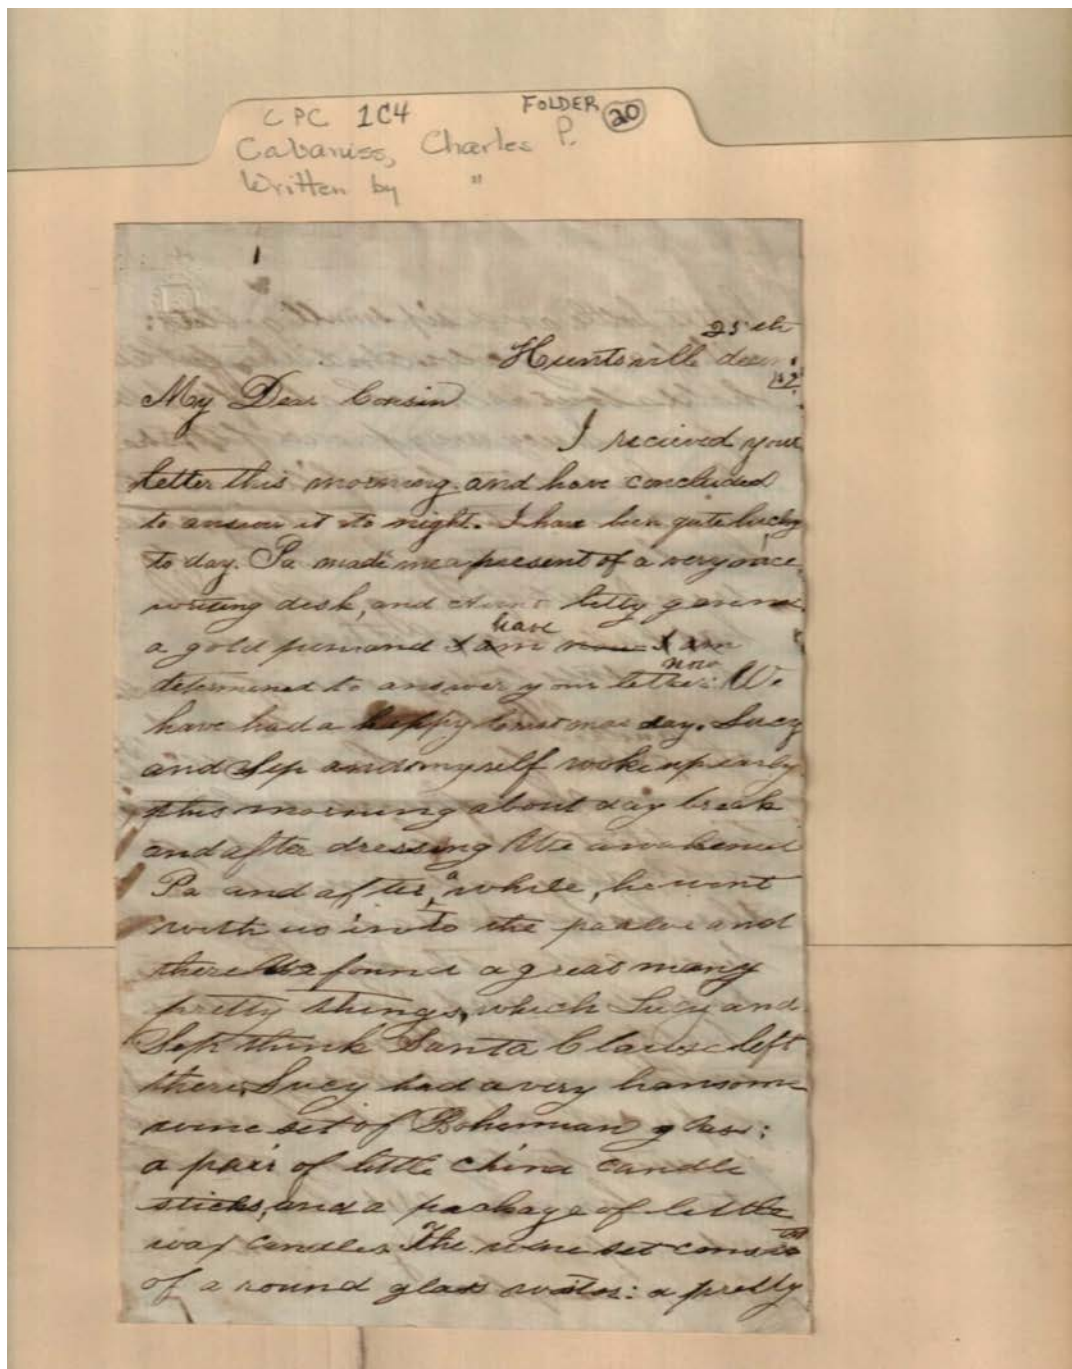 CPC 1C4 FOLDER 20
Cabaniss, Charles P.
Written by "
1
25th
Huntsville decm
My Dear Cousin
I recieved your
letter this morning and have concluded
to answer it to night. I have been quite lucky
to day. Pa made me a present of a very nice
writing desk, and Aunt Letty gave me
have
a gold pen and I am now I am
now
determined to answer your letter. We
have had a happy Christmas day. Lucy
and Sep and myself woke up early
this morning about day break
and after dressing We awakened
Pa and after a while, he went
with us into the parlor and
there We found a great many
pretty things, which Lucy and
Sep think Santa Claus left
there, Lucy had a very hansome
wine set of Bohemian glass:
a pair of little china candle
sticks, and a package of little
wax candles. The wine set consists
of a round glass waiter: a pretty